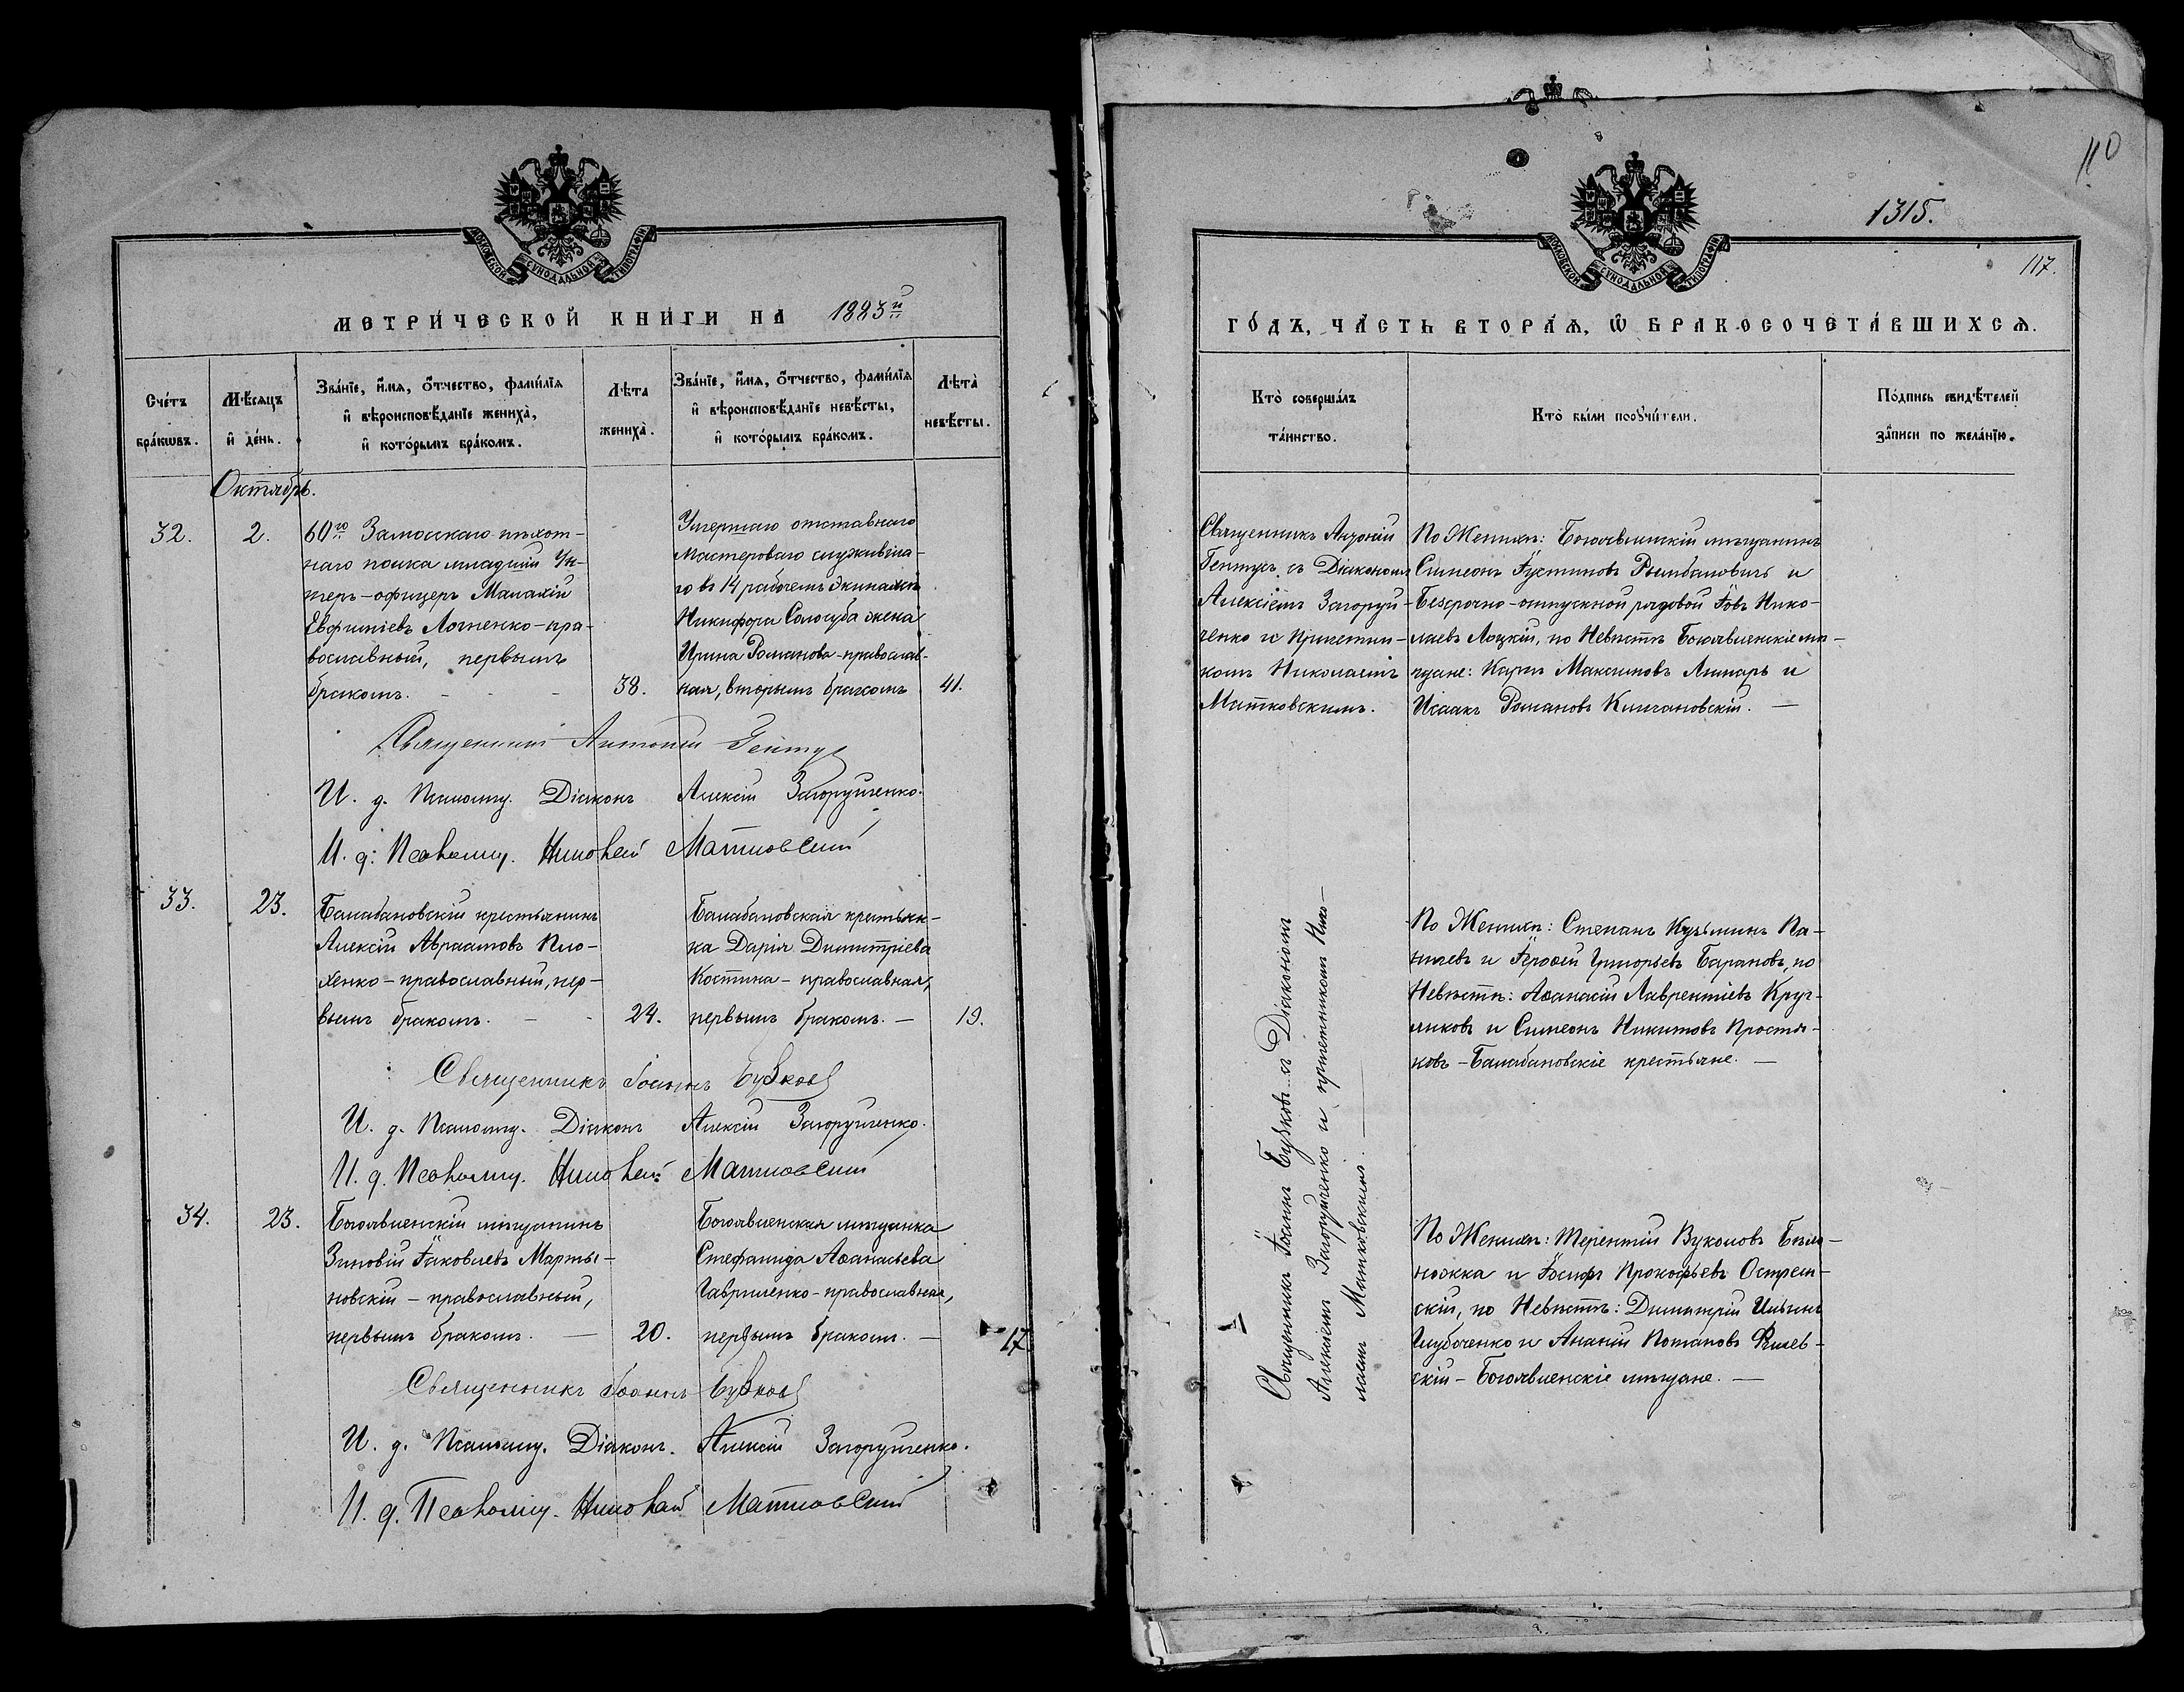 МОСКОВСКОЙ СУНОДАЛЬНОЙ ТИПОГРАФІИ
МЕТРИ́ЧЕСКОЙ КНИ́ГИ НА 1883й
Сче́тъ бра́кѡвъ.
Мѣ́сяцъ и҆ де́нь.
Зва́нїе, и҆́мѧ, ѻ҆́тчество, фами́лїѧ и҆ вѣроисповѣ́данїе жениха̀, и҆ кото́рымъ бра́комъ.
Лѣ́та жениха̀.
Зва́нїе, и҆́мѧ, ѻ҆́тчество, фами́лїѧ и҆ вѣроисповѣ́данїе невѣ́сты, и҆ кото́рымъ бра́комъ.
Лѣ́та невѣ́сты.
Октябрь.
32.
2.
60го Замосскаго пѣхот-
наго полка младшій Ун-
теръ-офицеръ Малахій
Евфиміевъ Логненко - пра-
вославный, первымъ
бракомъ. - - -
38.
Умершаго отставнаго
мастероваго служивша-
го въ 14 рабочемъ экипажѣ
Никифора Сологуба жена
Ирина Романова - православ-
ная, вторымъ бракомъ
41.
Священникъ Антоній Гентуз
И. д. Псаломщ. Діаконъ Алексій Загоруйченко.
И. д: Псаломщ. Николай Матковскій
33.
23.
Балабановскій крестьянинъ
Алексій Авраамовъ Пло-
хенко - православный, пер-
вымъ бракомъ. - -
24.
Балабановская крестьян-
ка Дарія Димитріева
Костина - православная,
первымъ бракомъ. —
19.
Священникъ Іоаннъ Бужковъ
И. д. Псаломщ. Діаконъ Алексій Загоруйченко.
И. д. Псаломщ. Николай Матковскій
34.
23.
Богоявленскій мѣщанинъ
Зиновій Іаковлевъ Марты-
новскій - православный,
первымъ бракомъ. —
20.
Богоявленская мѣщанка
Стефанида Аѳанасьева
Гавриленко - православная,
первымъ бракомъ. —
17.
Священникъ Іоаннъ
И. д. Псаломщ. Діаконъ. Алексій Загоруйченко.
И. д. Псаломщ. Николай Матковскій
110
1315.
117.
МОСКОВСКОЙ СУНОДАЛЬНОЙ ТИПОГРАФІИ
ГО́ДЪ, ЧА́СТЬ ВТОРА́Ѧ, Ѡ҆ БРАКОСОЧЕТА́ВШИХСѦ.
Кто̀ соверша́лъ та́инство.
Кто̀ бы́ли порꙋчи́тели.
По́дпись свидѣ́телей за́писи по жела́нїю.
Священникъ Антоній
Гентуз съ Діакономъ
Алексіемъ Загоруй-
ченко и Причетни-
комъ Николаемъ
Матковскимъ.
По Женихѣ: Богоявленскій мѣщанинъ
Симеонъ Іустиновъ Рымбаловичъ и
Безсрочно-отпускной рядовой Іовъ Нико-
лаевъ Лоцкій, по Невѣстѣ Богоявленскіе мѣ-
щане: Карпъ Максимовъ Линарь и
Исаакъ Романовъ Килчановскій. —
Священникъ Іоаннъ съ Діакономъ
Алексіемъ Загоруйченко и причетникомъ Нико-
лаемъ Матковскимъ. —
По Женихѣ: Степанъ Кузьминъ Па-
и Іероѳій Григорьевъ Барановъ, по
Невѣстѣ: Аѳанасій Лаврентіевъ Круг-
ликовъ и Симеонъ Никитовъ Простя-
ковъ - Балабановскіе крестьяне. —
По Женихѣ: Терентій Вуколовъ Бѣло-
ножка и Іосифъ Прокофьевъ Острем-
скій, по Невѣстѣ: Димитрій Ильинъ
Глубоченко и Ананій Потаповъ Рылев-
скій - Богоявленскіе мѣщане. —